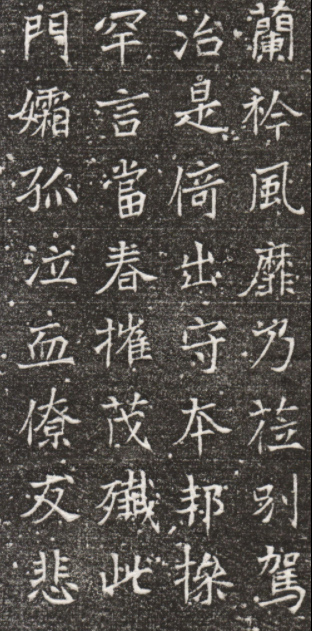 蘭衿風靡乃莅别駕
治是倚出守本邦操
罕言當春摧茂殲此
門孀孤泣血僚友悲